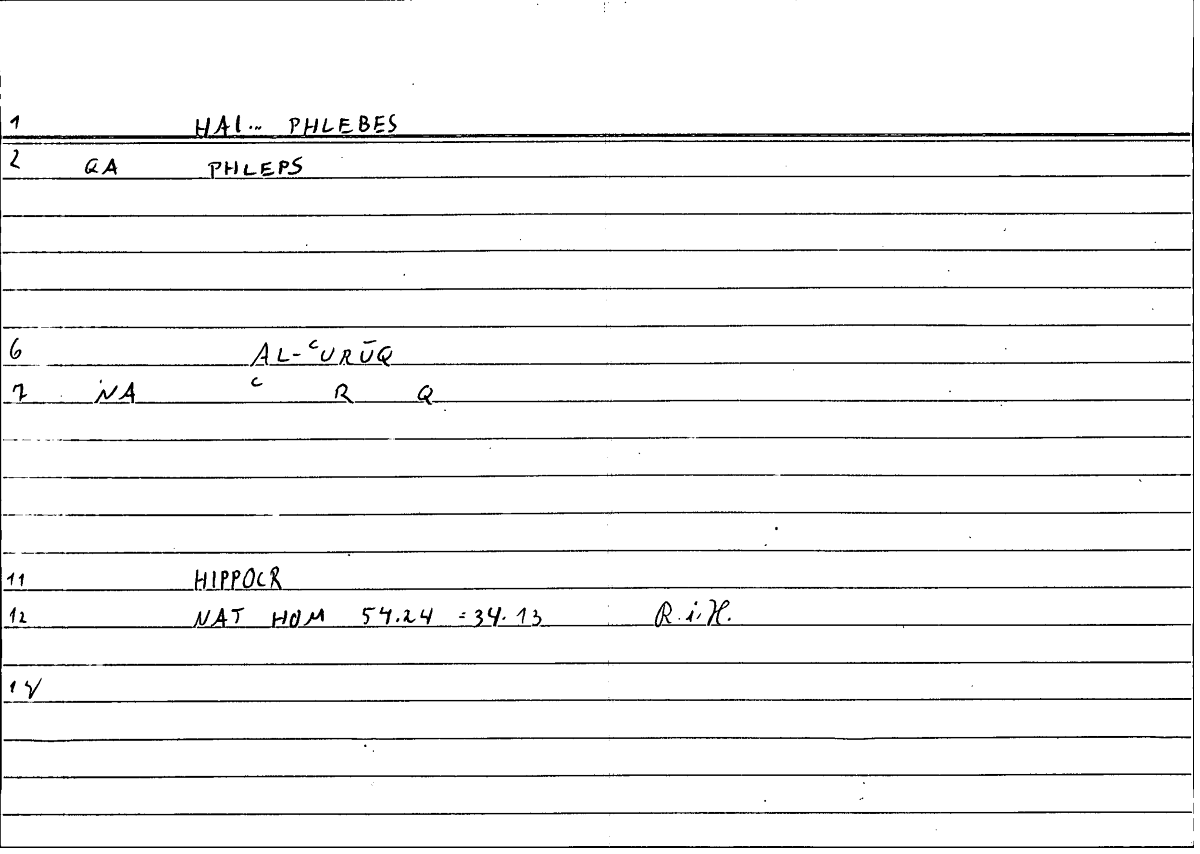 1 HAI... PHLEBES
2 QA PHLEPS
6 AL-ᶜURŪQ
7 NA ᶜ R Q
11 HIPPOCR
12 NAT HOM 54.24 =34.13 R.i.H.